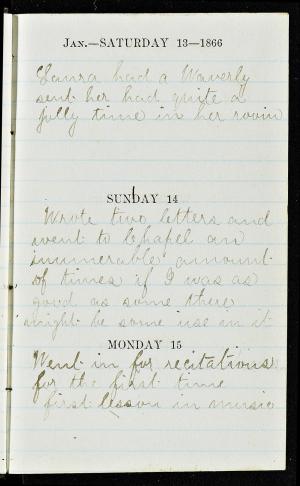 Jan.—SATURDAY 13—1866
Laura had a Waverly
sent her had quite a
jolly time in her room
SUNDAY 14
Wrote two letters and
went to Chapel an
innumerable amount
of times if I was as
good as some there
might be some use in it
MONDAY 15
Went in for recitations
for the first time
first lesson in music